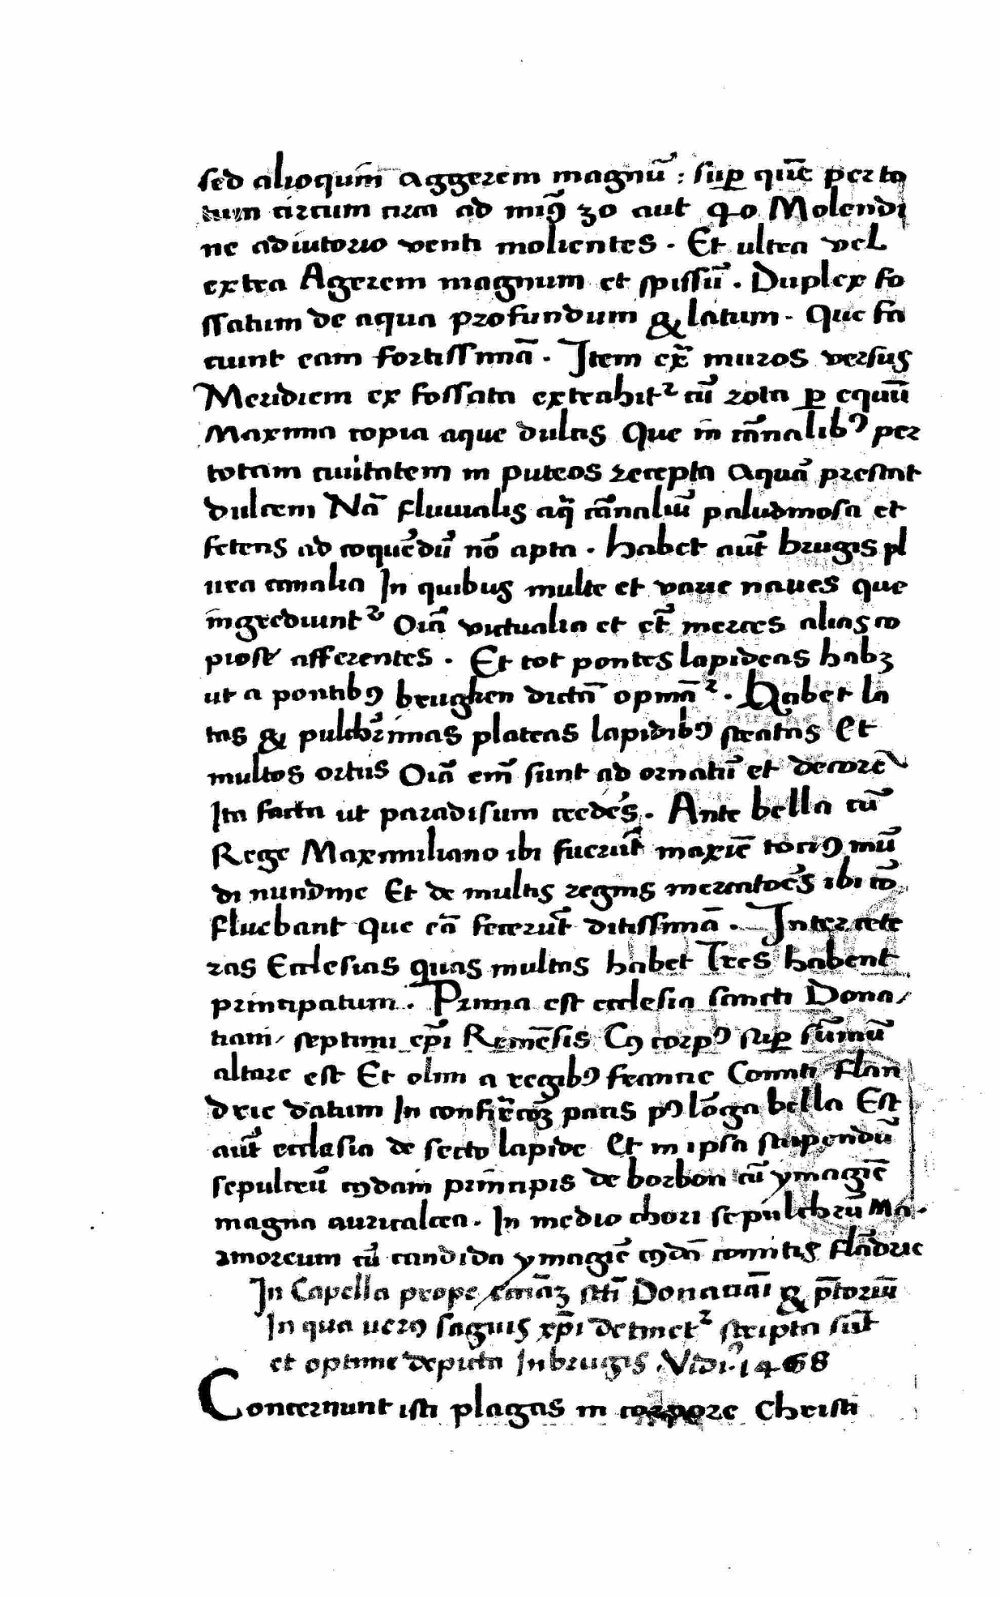 sed alioquim̄ Aggerem magnū : sup̲ quē per to
tum circum circa ad minꝯ 30 aut 40 Molendi
ne adiutorio venti molientes . Et ultra vel
extra Agerem magnum et spissū . Duplex fo
ssatum de aqua profundum & latum . Que fa
ciunt eam fortissimā . Item ex̄ muros versus
Meridiem ex fossata extrahit᷑ cū rota p̲ equū
Maxima copia aque dulcis Que in cānalibꝯ per
totam ciuitatem in puteos recepta Aquā prestat
dulcem Nā fluuialis aq̄ cānaliū paludinosa et
fetens ad coquēdū nō apta . Habet aūt brugis pl
ura canalia In quibus multe et varie naues que
ingrediunt᷑ Oīā victualia et cēt merces alias co
piose afferentes . Et tot pontes lapideas habꝫ
ut a pontibꝯ brughen dictā opinā᷑ . Habet la
tas & pulchrīmas plateas lapidibꝯ stratas Et
multos ortus Oīā em̄ sunt ad ornatū et decorē
Ita facta ut paradisum credēs . Ante bella cū
Rege Maxmiliano ibi fuerūt maxīe tociꝯ mū
di nundine Et de multis regnis mercatoēs ibi cō
fluebant Que eā fecerūt ditissimā . Inter cete
ras Ecclesias quas multas habet Tres habent
principatum . Prima est ecclesia sancti Dona/
tiani/ septimi ep̄i Remēsis Cꝯ corpꝯ sup̲ sūmū
altare est Et olim a regibꝯ francie Comiti flan
drie datum In confīrcōꝫ pacis pꝯ lōga bella Est
aūt ecclesia de secto lapide Et in ipsa stupendū
sepulcrū cꝯdam principis de borbon cū ymagīe
magna auricalcea . In medio chori sepulchrū Ma-
armoreum cū candida ymagīe cꝯdā comitis flādrie
In Capella prope ecciāꝫ sc̄ti Donaciāi & p̄toriū
In qua verꝯ saguis xp̄i detinet᷑ scripta sūt
et optime depicta In brugis . Vidi . 1468
Concernunt isti plagas in corpore Christi